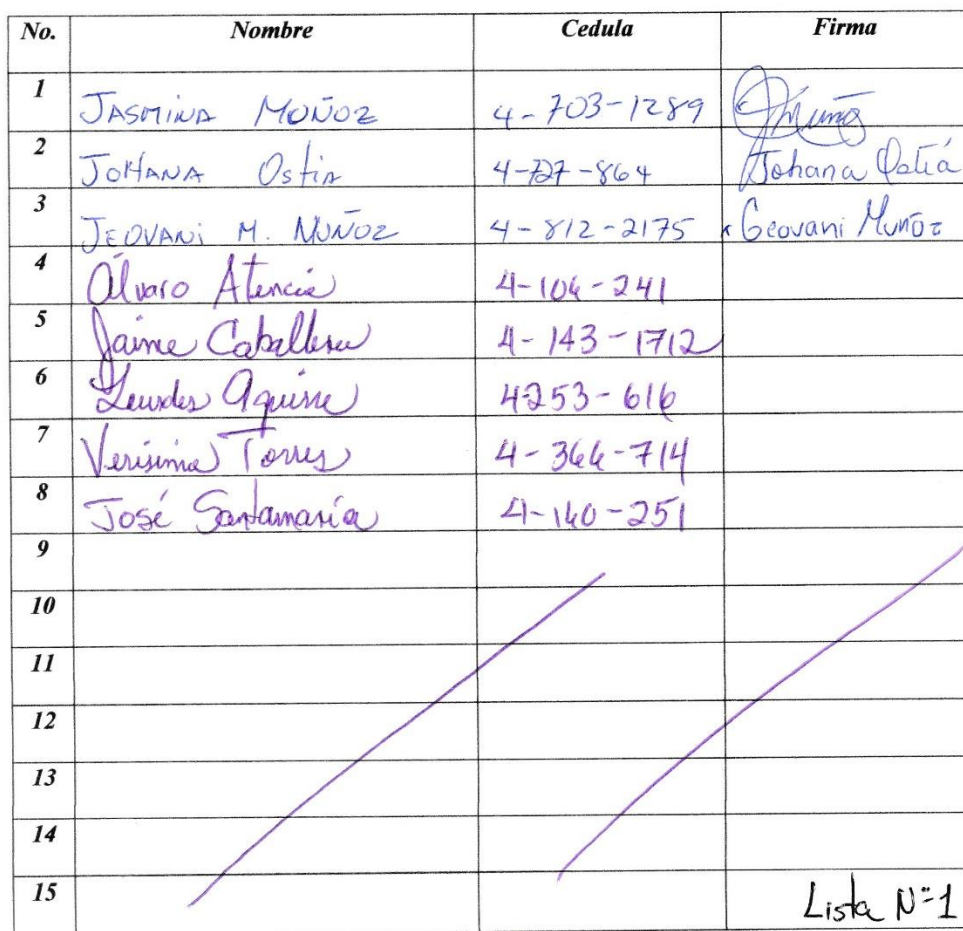 No. Nombre Cedula Firma
1 JASMINA MUÑOZ 4-703-1289 JMuño
2 JOHANA Ostia 4-727-864 Johana
3 JEOVANI M. MUÑOZ 4-812-2175 Geovani Muñoz
4 Álvaro Atencia 4-104-241
5 Jaime Caballero 4-143-1712
6 Lourdes Aguirre 4253-616
7 Torres 4-366-714
8 José Santamaría 4-140-251
9
10
11
12
13
14
15 Lista Nº1